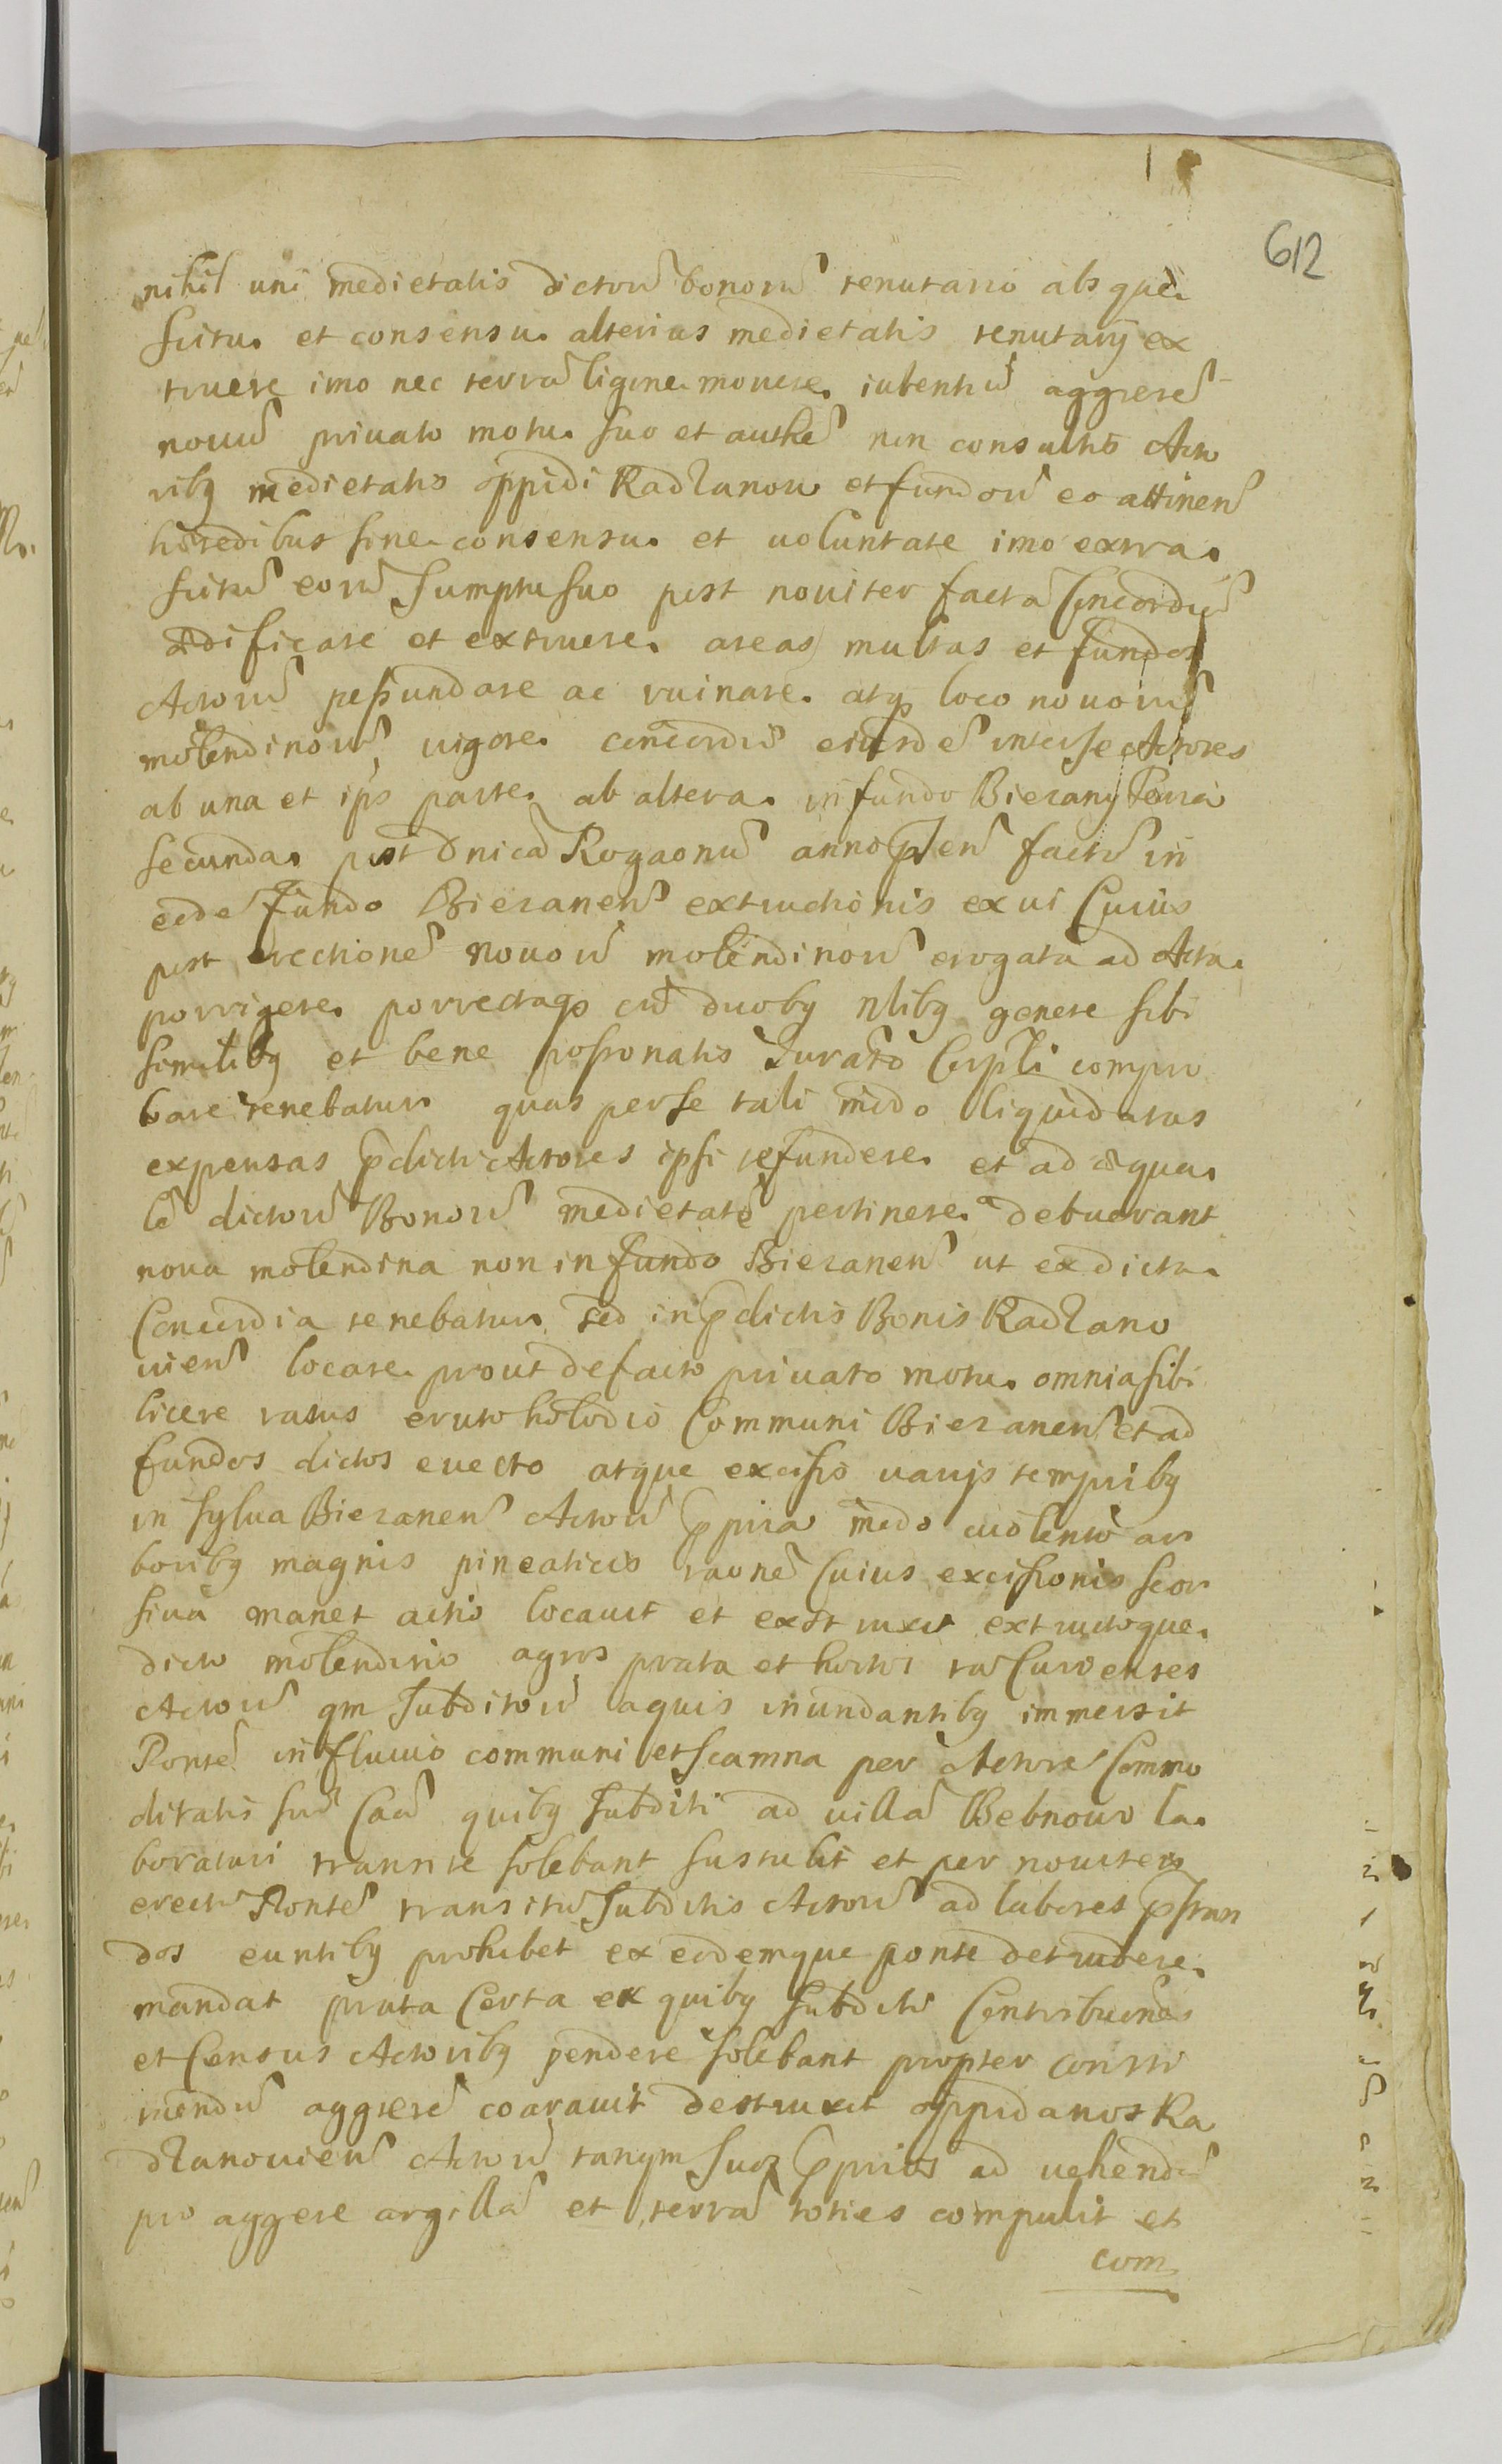 612
nihil uni medietatis dictorū bonorū tenutario absque
scitu et consensu alterius medietatis tenutarij ex
truere imo nec terrā ligone mouere iubentiū aggerē
nouū priuato motu suo et authē non consultis Acto
ribꝫ medietatis oppidi Radlanow et fundorū eo attinen
hæredibus sine consensu et uoluntate imo extra
scitū eorū sumptu suo post nouiter factā Concordiā
ædificare et extruere areas multas et fundos
Actorū pessundare ac ruinare atqꝫ loco nouorū
molendinorū uigore concordiæ eiusdē inter se Actores
ab una et ips parte ab altera in fundo Biezany Feria
secunda post Dnicā Rogaonū anno pñten factæ in
eodē fundo Biezanen extructionis ex ui Cuius
post erectionē nouorū molendinorū erogata ad Acta
porrigere porrectaqꝫ cū duobꝫ nlibꝫ genere sibi
similibꝫ et bene possionatis Jurato Corpli compro
bare tenebatur quas per se tali modo liquidatas
expensas p̄dicti Actores ipsi refundere et ad æqua
lē dictorū Bonorū medietatē pertinere debuerant
noua molendina non in fundo Biezanen ut ex dicta
Concordia tenebatur sed in p̄dictis Bonis Radlano
uien locare prout de facto priuato motu omnia sibi
licere ratus eruto holodio Communi Biezanen et ad
fundos dictos euecto atque excisis uarijs temporibꝫ
in sylua Biezanen Actorū ꝓpria modo uiolento ar
boribꝫ magnis pineaticis raonē Cuius excissionis seor
siua manet actio locauit et exstruxit extructoque
dicto molendino agros prata et hortos tā Curienses
Actorū qm subditorū aquis inundantibꝫ immersit
Pontē in fluuio communi et scamna per Actores Commo
ditatis suæ Caā quibꝫ subditi ad uillā Bebnow la
boraturi transire solebant sustulit et per nouiter
erectū Pontē transitū subditis Actorū ad labores p̄stan
dos euntibꝫ prohibet ex eodemque ponte detrudere
mandat prata Certa ex quibꝫ subditi Contribuoñes
et Census Actoribꝫ pendere solebant propter constr
uendū aggerē coarauit destruxit oppidanos Ra
dlanouien Actorū tanqm suos ꝓprios ad uehendū
pro aggere argillā et terrā toties compulit et
com